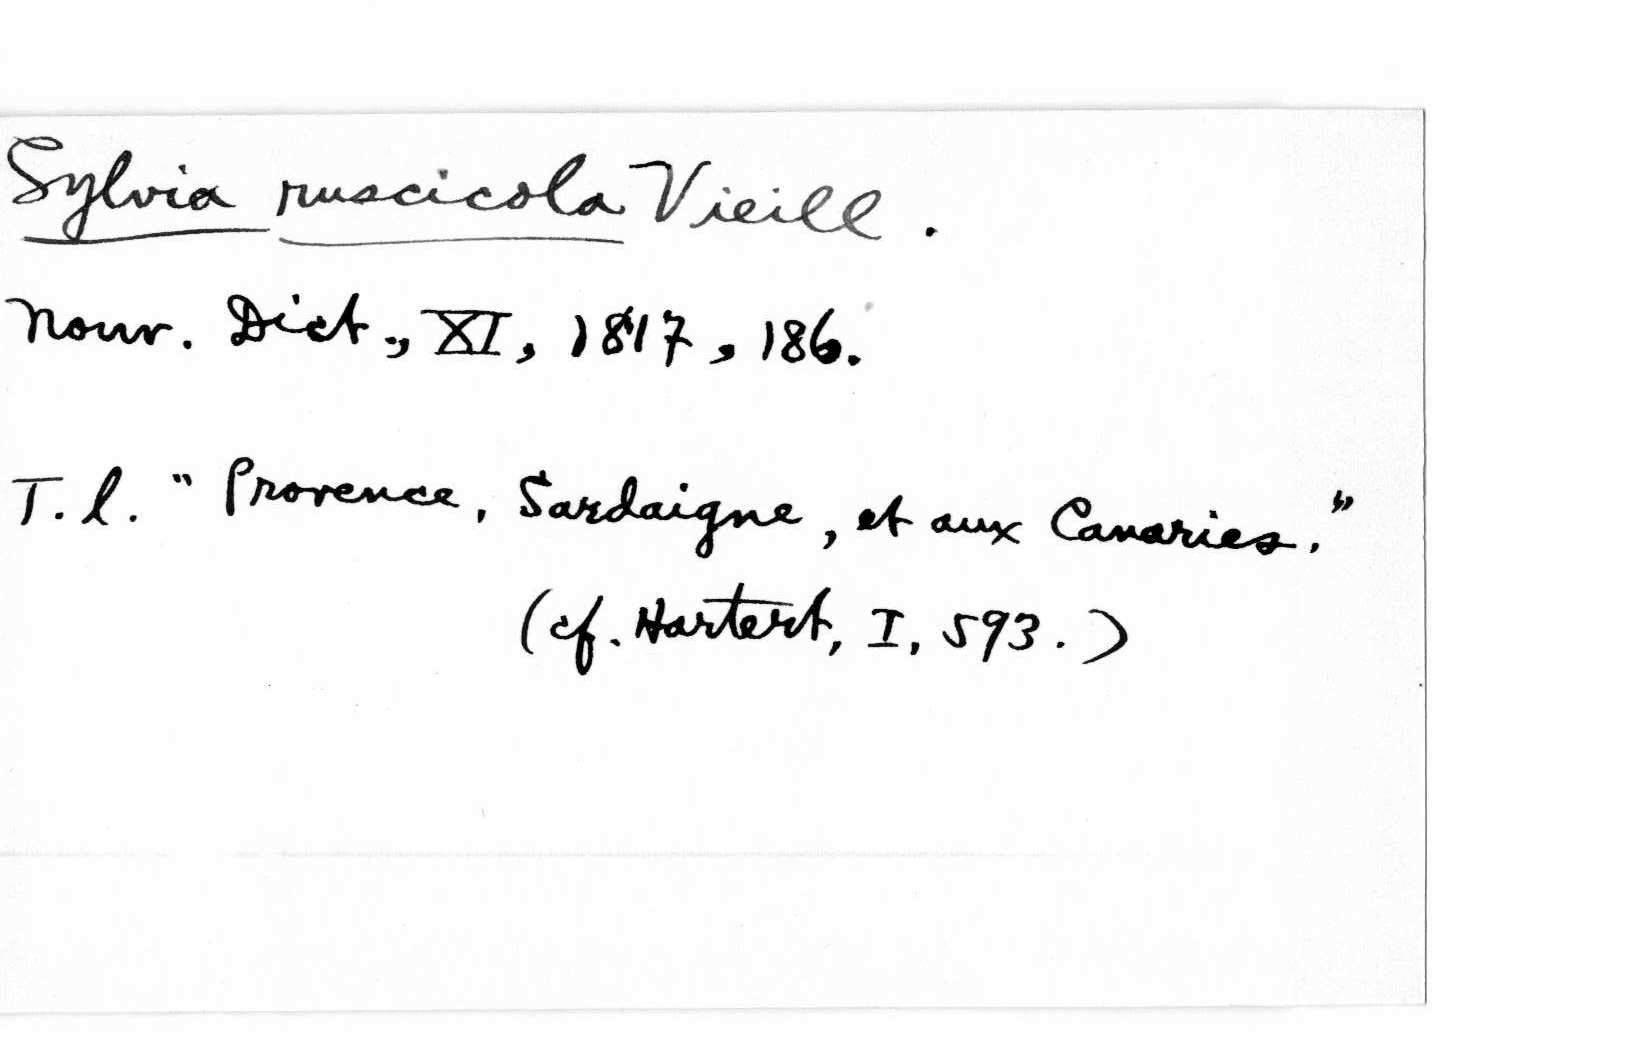 Sylvia ruscicola Vieill.
Nouv. Dict., XI, 1817, 186.
T.l. "Provence, Sardaigne, et aux Canaries."
(cf. Hartert, I, 593.)